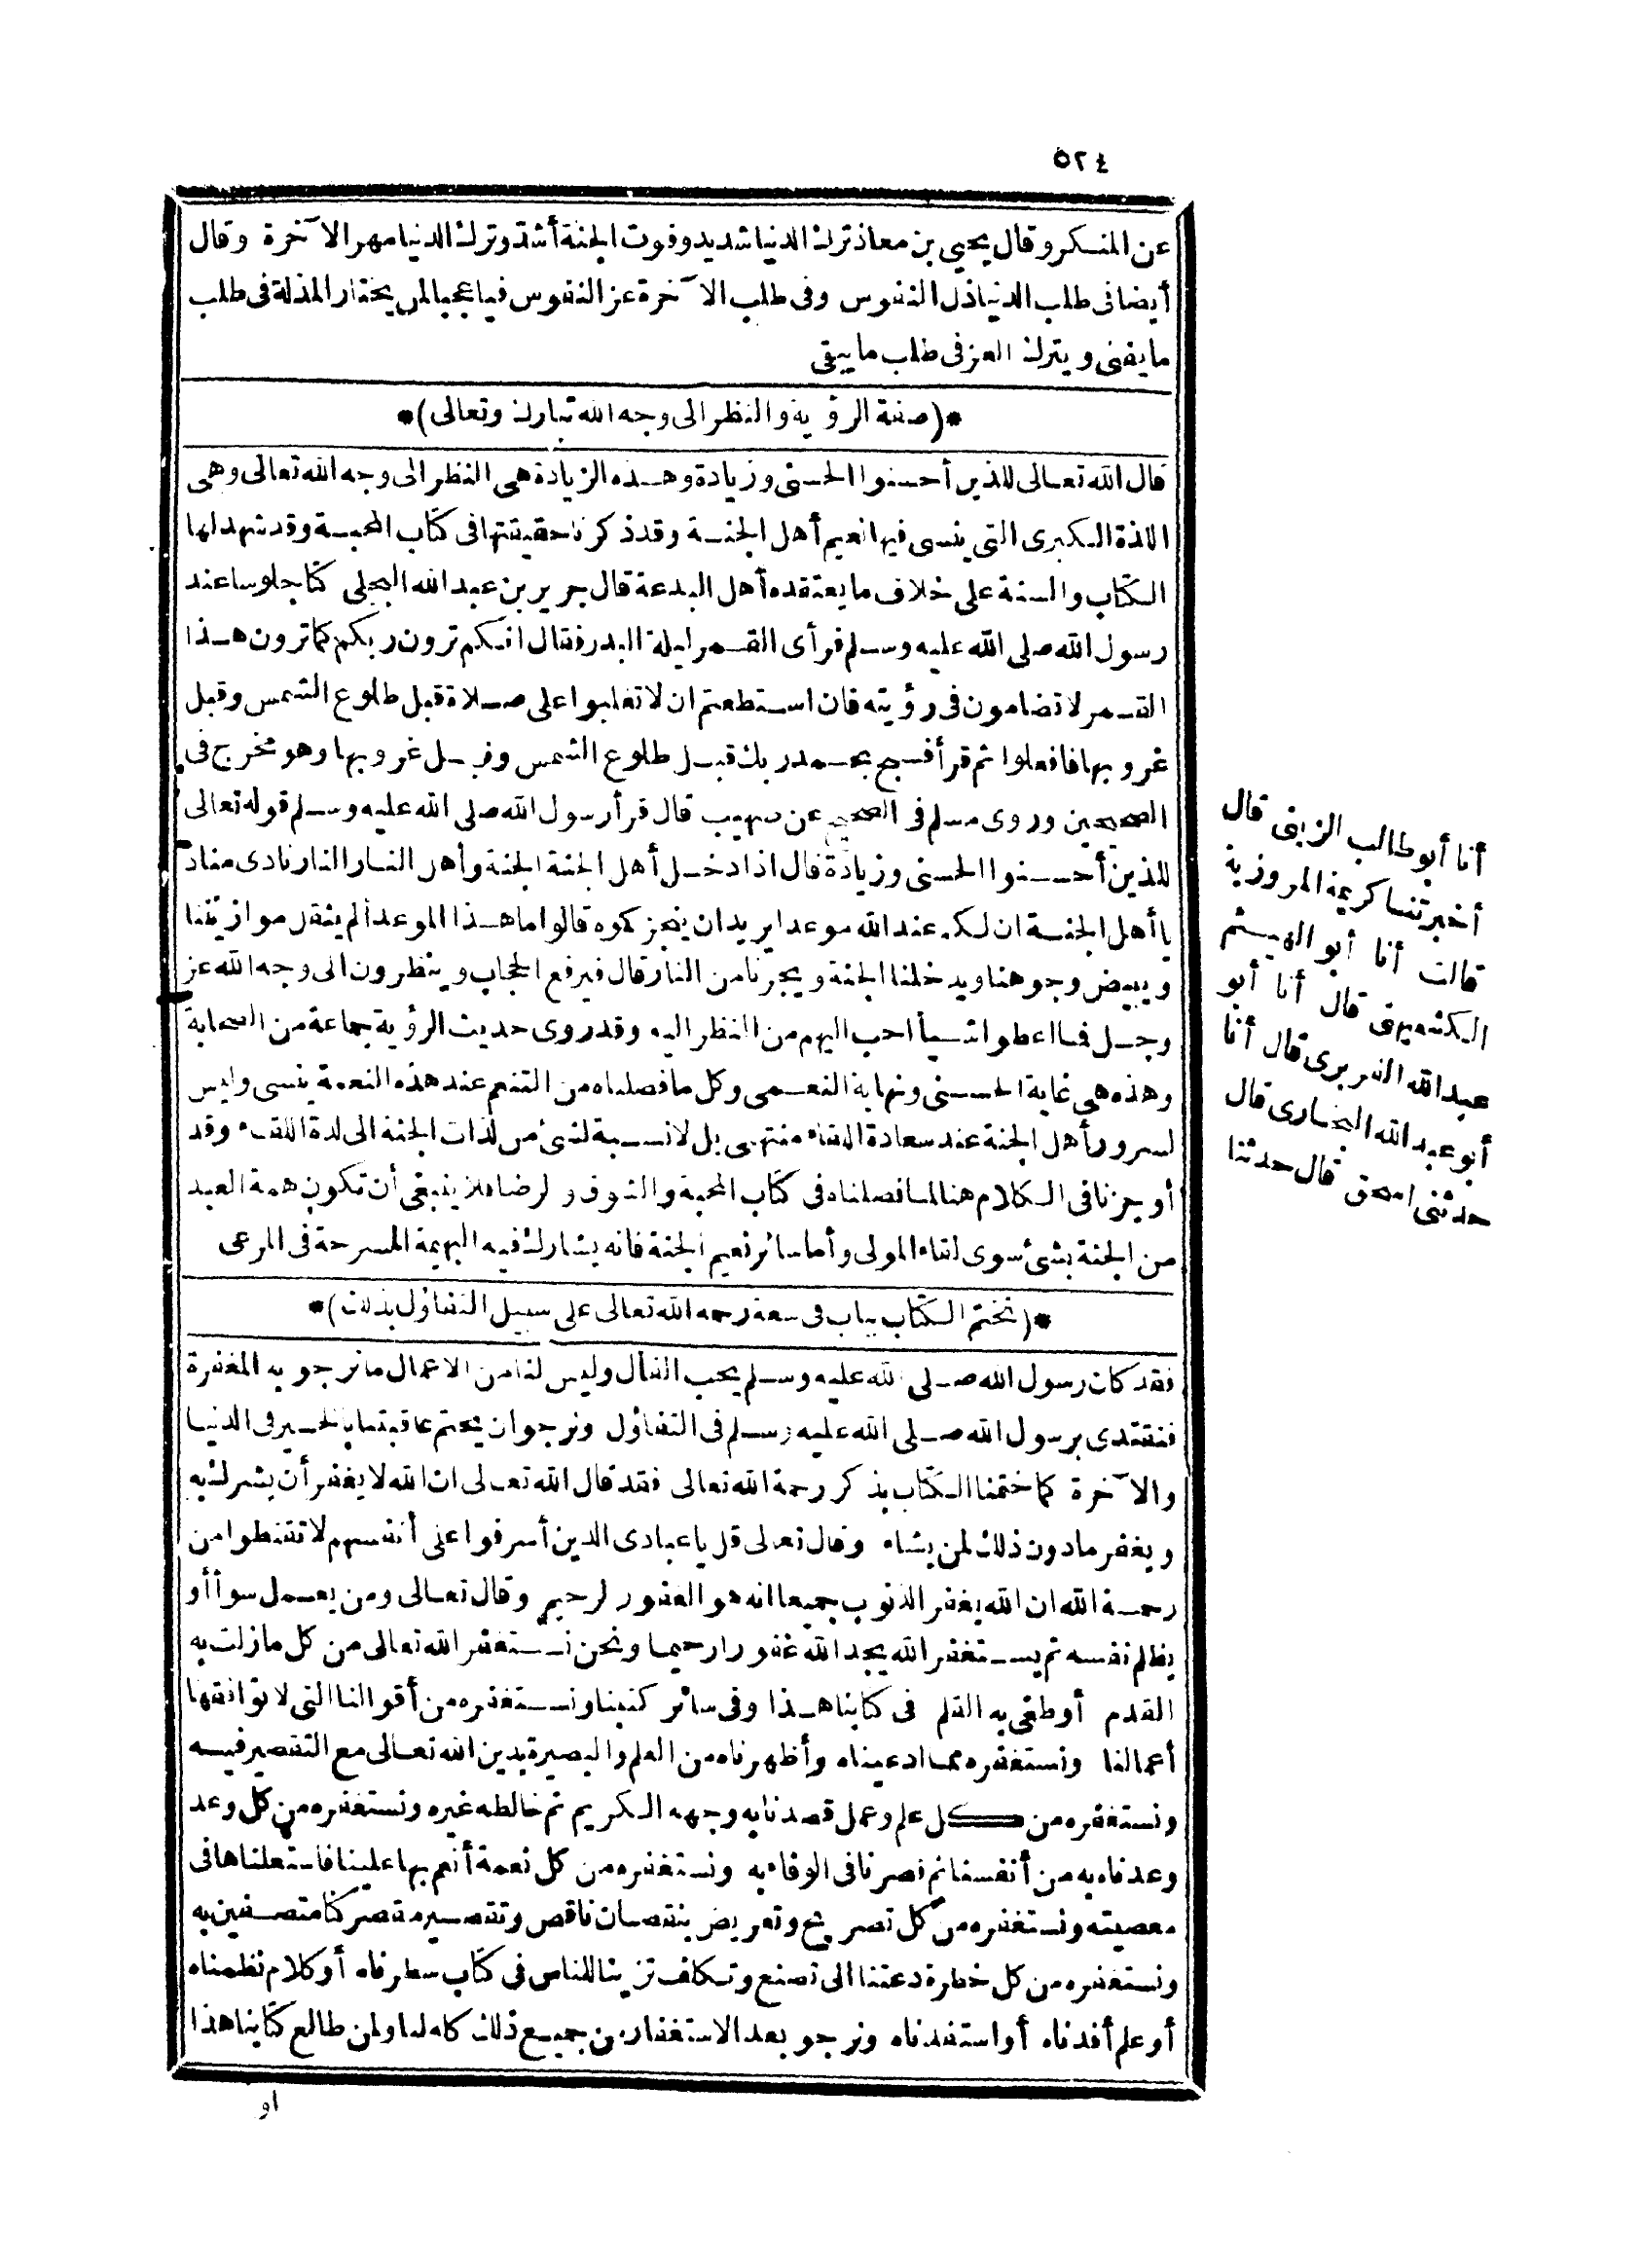 ٥٢٤
عن المنكر وقال يحيى بن معاذ ترك الدنيا شديد وفوت الجنة أشد وترك الدنيا مهر الآخرة وقال
أيضا فى طلب الدنيا ذل النفوس وفى طلب الآخرة عز النفوس فيا عجبا لمن يختار المذلة فى طلب
ما يفنى ويترك العز فى طلب ما يبقى
*(صفة الرؤية والنظر الى وجه الله تبارك وتعالى)*
قال الله تعالى للذين أحسنوا الحسنى وزيادة وهذه الزيادة هى النظر الى وجه الله تعالى وهى
اللذة الكبرى التى ينسى فيها نعيم أهل الجنة وقد ذكرنا حقيقتها فى كتاب المحبة وقد شهد لها
الكتاب والسنة على خلاف ما يعتقده أهل البدعة قال جرير بن عبد الله البجلى كنا جلوسا عند
رسول الله صلى الله عليه وسلم فرأى القمر ليلة البدر فقال انكم ترون ربكم كما ترون هذا
القمر لا تضامون فى رؤيته فان استطعتم ان لا تغلبوا على صلاة قبل طلوع الشمس وقبل
غروبها فافعلوا ثم قرأ فسبح بحمد ربك قبل طلوع الشمس وقبل غروبها وهو مخرج فى
الصحيحين وروى مسلم فى الصحيح عن صهيب قال قرأ رسول الله صلى الله عليه وسلم قوله تعالى
للذين أحسنوا الحسنى وزيادة قال اذا دخل أهل الجنة الجنة وأهل النار النار نادى مناد
يا أهل الجنة ان لكم عند الله موعدا يريد ان ينجزكموه قالوا ما هذا الموعد ألم يثقل موازيننا
ويبيض وجوهنا ويدخلنا الجنة ويجرنا من النار قال فيرفع الحجاب وينظرون الى وجه الله عز
وجل فما اعطوا شيأ احب اليهم من النظر اليه وقد روى حديث الرؤية جماعة من الصحابة
وهذه هى غاية الحسنى ونهاية النعمى وكل ما فصلناه من التنعم عند هذه النعمة ينسى وليس
لسرور أهل الجنة عند سعادة اللقاء منتهى بل لا نسبة لشئ من لذات الجنة الى لذة اللقاء وقد
أوجزنا فى الكلام هنا لما فصلناه فى كتاب المحبة والشوق والرضا فلا ينبغى أن تكون همة العبد
من الجنة بشئ سوى لقاء المولى وأما سائر نعيم الجنة فانه يشارك فيه البهيمة المسرحة فى المرعى
*(نختم الكتاب بباب فى سعة رحمه الله تعالى على سبيل التفاؤل بذلك)*
فقد كان رسول الله صلى الله عليه وسلم يحب الفأل وليس لنا من الاعمال ما نرجو به المغفرة
فنقتدى برسول الله صلى الله عليه وسلم فى التفاؤل ونرجو ان يختم عاقبتنا بالخير فى الدنيا
والآخرة كما ختمنا الكتاب بذكر رحمة الله تعالى فقد قال الله تعالى ان الله لا يغفر أن يشرك به
ويغفر ما دون ذلك لمن يشاء وقال تعالى قل يا عبادى الذين أسرفوا على أنفسهم لا تقنطوا من
رحمة الله ان الله يغفر الذنوب جميعا انه هو الغفور الرحيم وقال تعالى ومن يعمل سوأ أو
يظلم نفسه ثم يستغفر الله يجد الله غفورا رحيما ونحن نستغفر الله تعالى من كل ما زلت به
القدم أو طغى به القلم فى كتابنا هذا وفى سائر كتبنا ونستغفره من أقوالنا التى لا توافقها
أعمالنا ونستغفره مما ادعيناه وأظهرناه من العلم والبصيرة بدين الله تعالى مع التقصير فيه
ونستغفره من كل علم وعمل قصدنا به وجهه الكريم ثم خالطه غيره ونستغفره من كل وعد
وعدناه به من أنفسنا ثم قصرنا فى الوفاء به ونستغفره من كل نعمة أنعم بها علينا فاستعملناها فى
معصيته ونستغفره من كل تصريح وتعريض بنقصان ناقص وتقصير مقصر كنا متصفين به
ونستغفره من كل خطرة دعتنا الى تصنع وتكلف تزينا للناس فى كتاب سطرناه أو كلام نظمناه
أو علم أفدناه أو استفدناه ونرجو بعد الاستغفار من جميع ذلك كله لنا ولمن طالع كتابنا هذا
او
أنا أبو طالب الزينى قال
أخبرتنا كريمة المروزية
قالت أنا أبو الهيثم
الكشميهنى قال أنا أبو
عبد الله الفربرى قال أنا
أبو عبد الله البخارى قال
حدثنى اسحق قال حدثنا